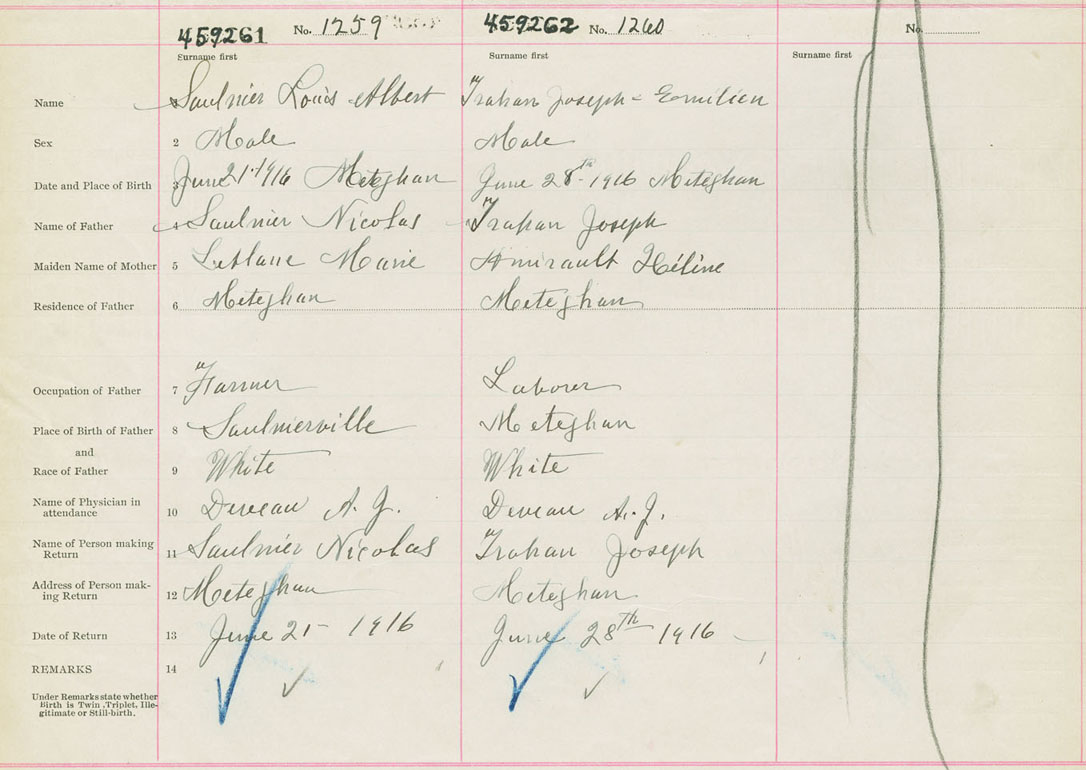 459261 No. 1259 459262 No. 1260 No.
Surname first Surname first Surname first
Name Saulnier Louis Albert Trahan Joseph - Emilien
Sex 2 Male Male
Date and Place of Birth 3 June 21st 1916 Meteghan June 28th - 1916 Meteghan
Name of Father 4 Saulnier Nicolas Trahan Joseph
Maiden Name of Mother 5 Leblanc Marie Amirault Hélène
Residence of Father 6 Meteghan Meteghan
Occupation of Father 7 Farmer Laborer
Place of Birth of Father 8 Saulnierville Meteghan
and
Race of Father 9 White White
Name of Physician in
attendance 10 Deveau A. J. Deveau A. J.
Name of Person making
Return 11 Saulnier Nicolas Trahan Joseph
Address of Person mak-
ing Return 12 Meteghan Meteghan
Date of Return 13 June 21 - 1916 June 28Th 1916
REMARKS 14
Under Remarks state whether
Birth is Twin, Triplet, Ille-
gitimate or Still-birth.